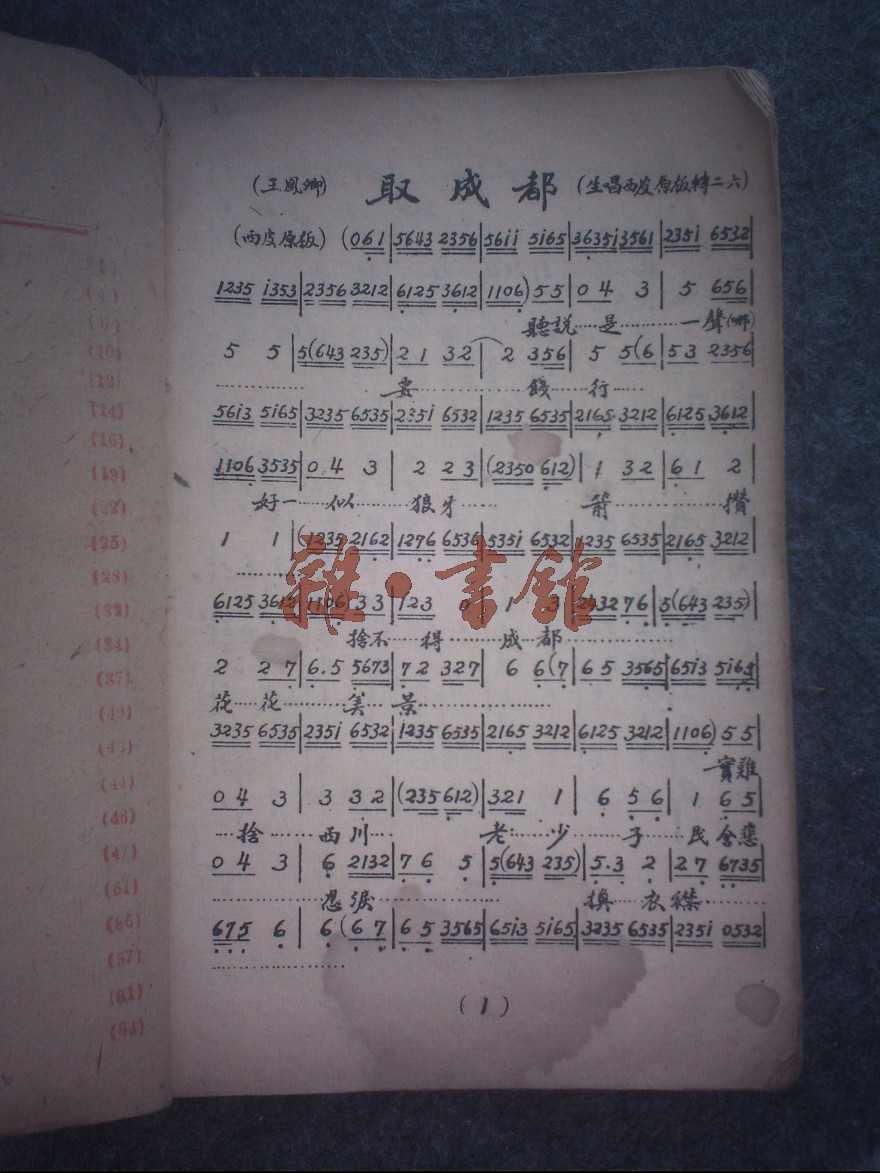 (王鳳卿) 取成都 (生唱西皮原板轉二六)
(西皮原板) (061|5643 2356|56ii 5i65|3635i3561|235i 6532|
1235 i353|2356 3212|6125 3612|1106)55|04 3|5 656|
聽説……是…………一聲(哪)
5 5|5(643 235)|21 32|2 356|5 5(6|53 2356|
……………要…………餞……行……
56i3 5i65|3235 6535|235i 6532|1235 6535|2165 3212|6125 3612|
1106 3535|04 3|2 23|(2350 612)|1 32|61 2|
好一……似………狼牙…… 箭………攢
1 1|(1235 2162|1276 6536|535i 6532|1235 6535|2165 3212|
………
6125 3612|1106)33|123 0|1 3|2432 76|5(643 235)|
捨不……得………成都…………
2 27|6.5 5673|72 327|6 6(7|65 3565|65i3 5i65|
花……花………美……景……………
3235 6535|235i 6532|1235 6535|2165 3212|6125 3212|1106)55|
實難
04 3|3 32|(235 612)|321 1|6 56|1 65|
……捨………西川…… 老……少……子……民
04 3|6 2132|76 5|5(643 235)|5.3 2|27 6735|
淚…………… 衣襟……
675 6|6(67|65 3565|65i3 5i65|3235 6535|235i 0532|
………………
(1)
(9)
(10)
(12)
(14)
(16)
(19)
(22)
(25)
(28)
(32)
(34)
(37)
(46)
(47)
(57)
(61)
(64)
雜·書館